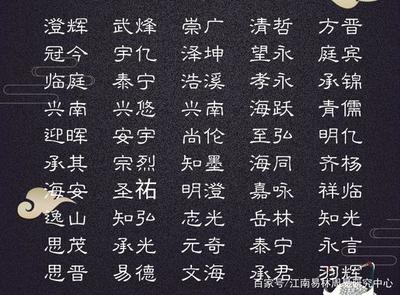 澄辉 武烽 崇广 清哲 方晋
冠今 宇亿 泽坤 望永 庭宾
临庭 泰宁 浩溪 孝永 承锦
兴南 兴悠 尚南 海跃 青儒
迎晖 安宇 尚伦 至弘 明亿
承其 宗烈 知墨 海同 齐杨
海安 圣祐 明澄 嘉咏 祥临
逸山 知弘 志光 岳林 知光
思茂 承光 元奇 泰宁 永言
思晋 易德 文海 承君 羽辉
百家号/江南易林周易研究中心